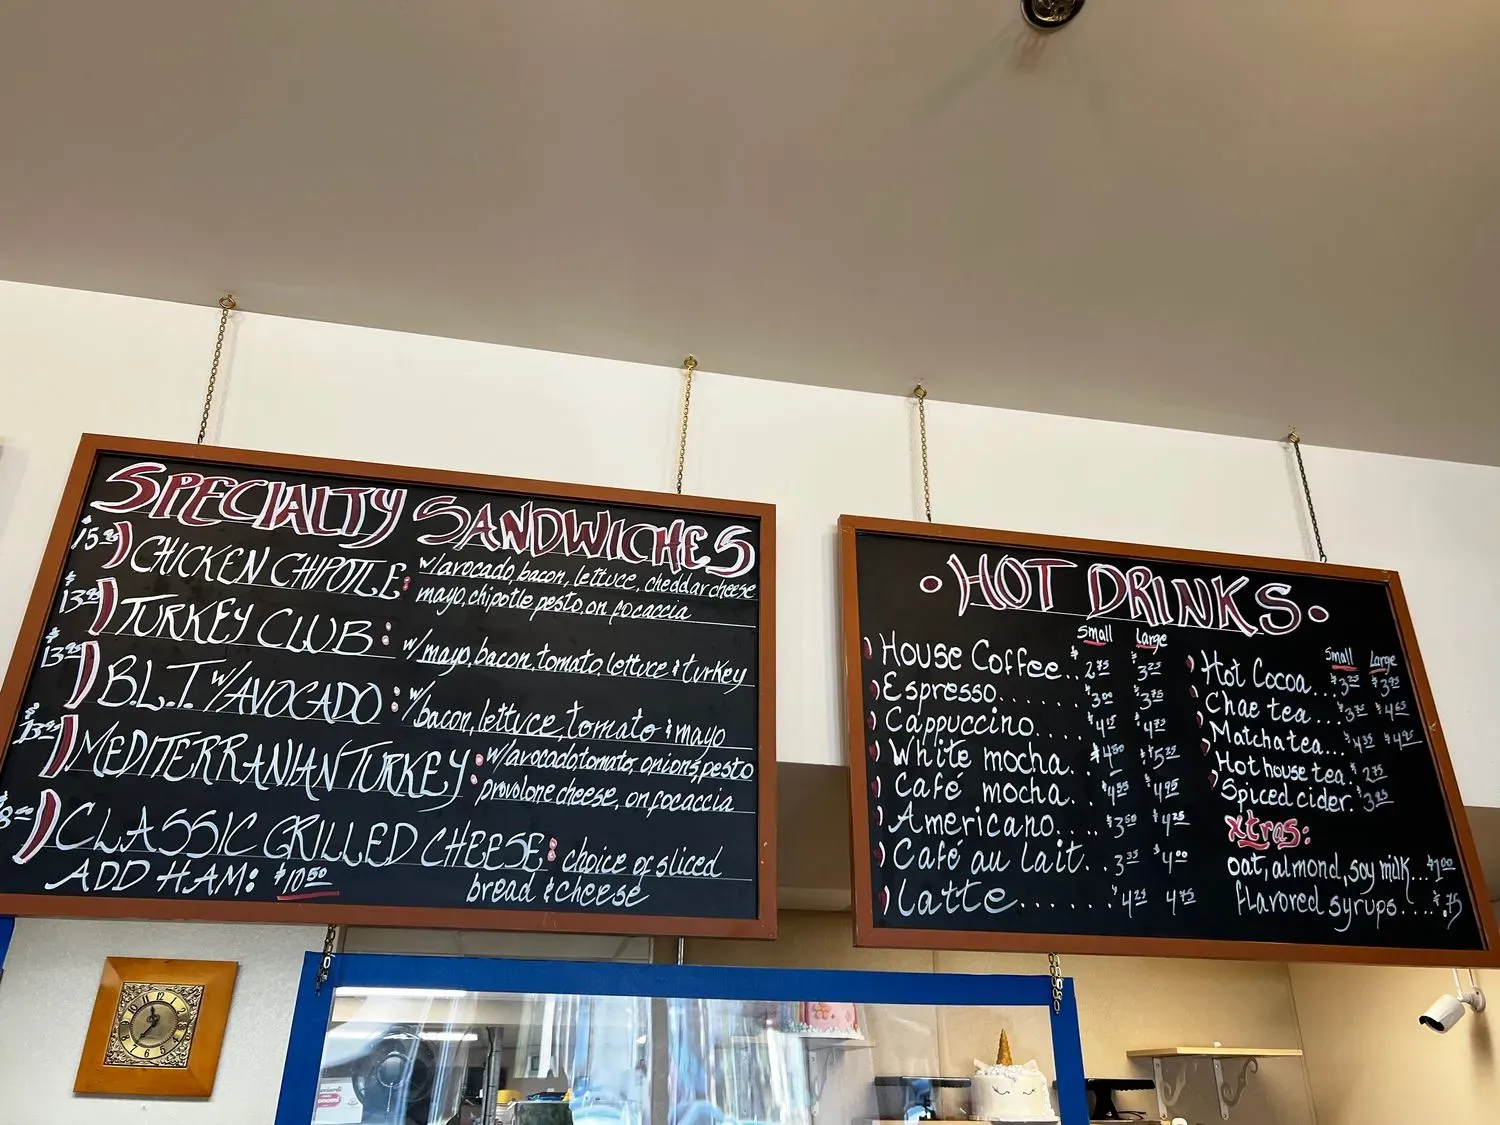 SPECIALTY SANDWICHES
$15.95) CHICKEN CHIPOTLE: w/avocado, bacon, lettuce, cheddar cheese
mayo, chipotle pesto, on focaccia
$13.95) TURKEY CLUB: w/mayo, bacon, tomato, lettuce & turkey
$13.95) B.L.T. w/AVOCADO: w/bacon, lettuce, tomato & mayo
$13.95) MEDITERRANIAN TURKEY: w/avocado tomato, onions, pesto
provolone cheese, on focaccia
CLASSIC GRILLED CHEESE: choice of sliced
bread & cheese
ADD HAM: $10.50
• HOT DRINKS •
Small Large
House Coffee... $2.75 $3.25
Espresso...... $3.00 $3.75
Cappuccino.... $4.25 $4.75
White mocha.. $4.80 $5.25
Café mocha.. $4.25 $4.95
Americano.... $3.50 $4.25
Café au lait.. 3.35 $4.00
Latte...... $4.25 4.75
Small Large
Hot Cocoa... $3.25 $3.95
Chae tea... $3.75 $4.65
Matcha tea... $4.35 $4.95
Hot house tea. $2.75
Spiced cider. $3.25
xtras:
oat, almond, soy milk... $1.00
flavored syrups.... $.75